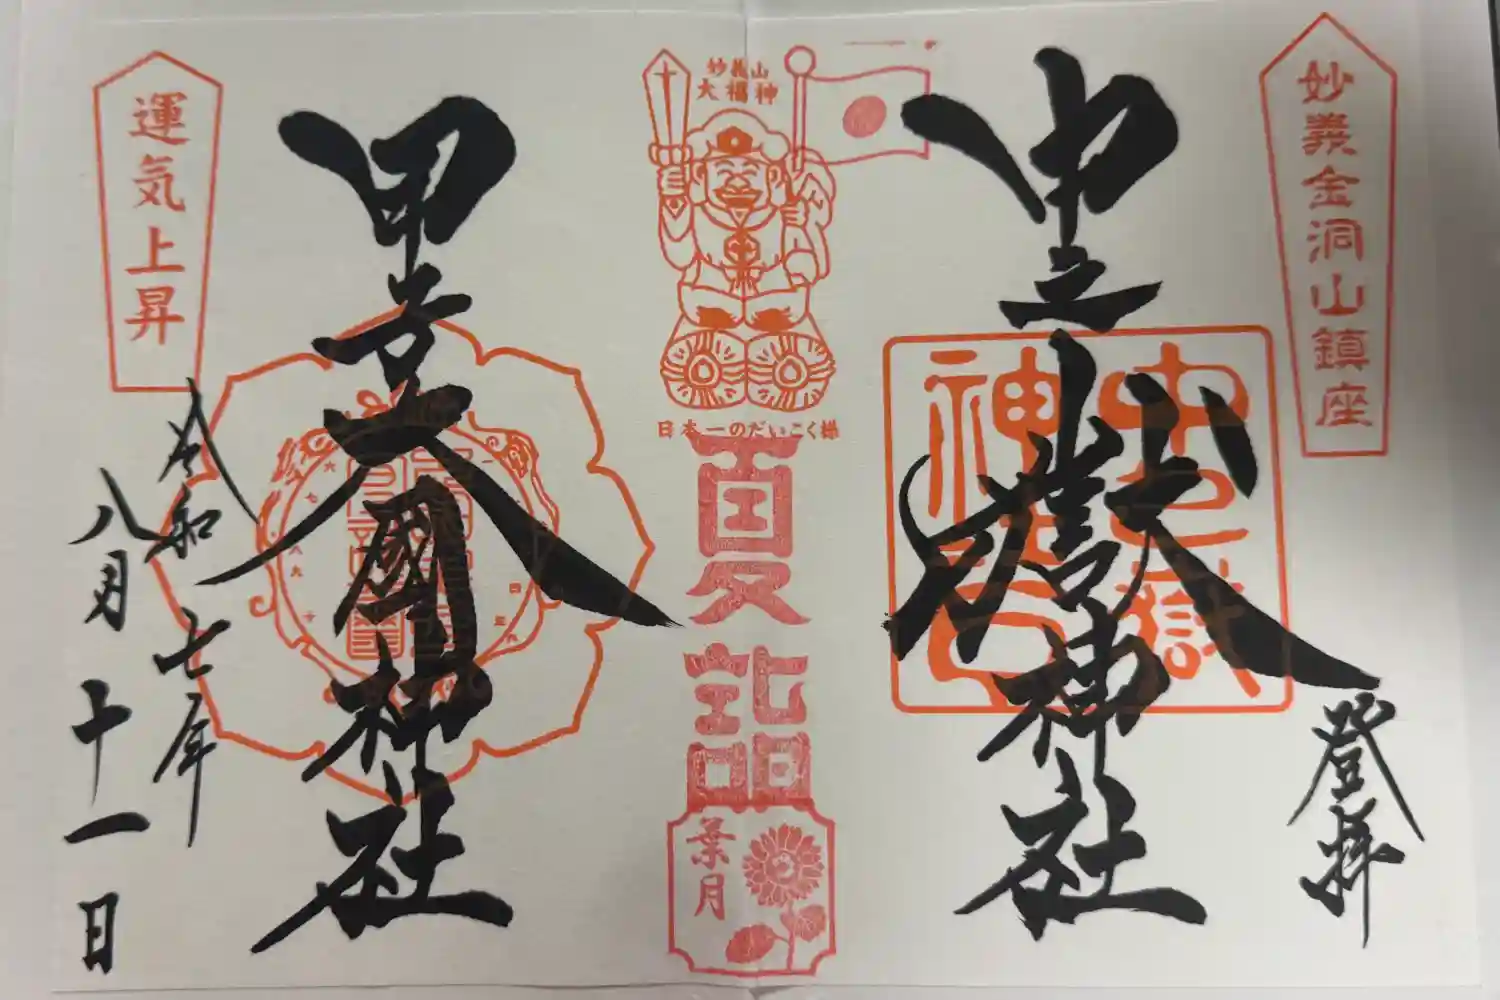 妙義金洞山鎮座
登拝
中之嶽神社
中之嶽
神社
妙義山
大福神
日本一のだいこく様
夏詣
葉月
甲子大國神社
運気上昇
令和七年
八月十一日